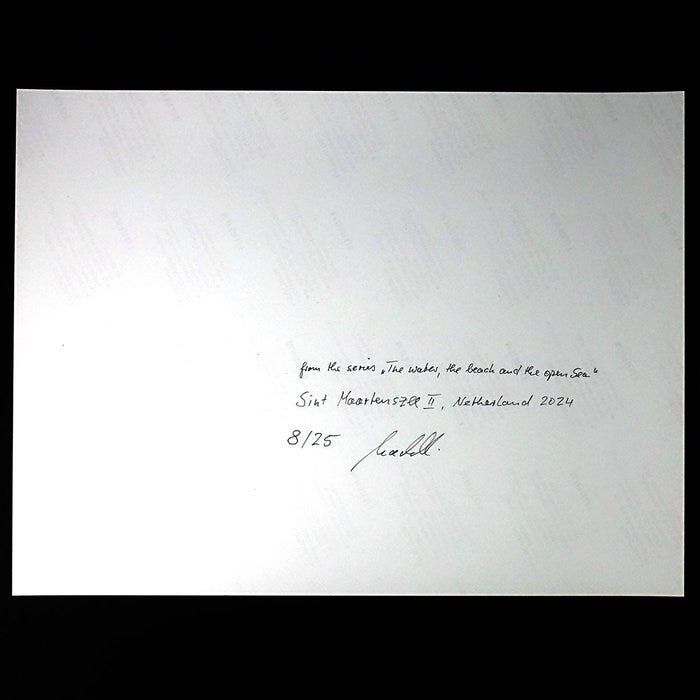 from the series „The water, the beach and the open Sea“
Sint Maartenszee II, Netherland 2024
8/25